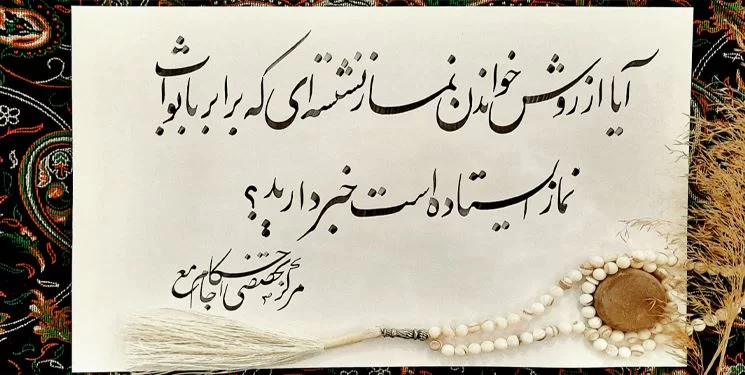 آیا از روش خواندن نماز نشسته‌ای که برابر با ثواب
نماز ایستاده است خبر دارید؟
مرکز تخصصی احکام جامع